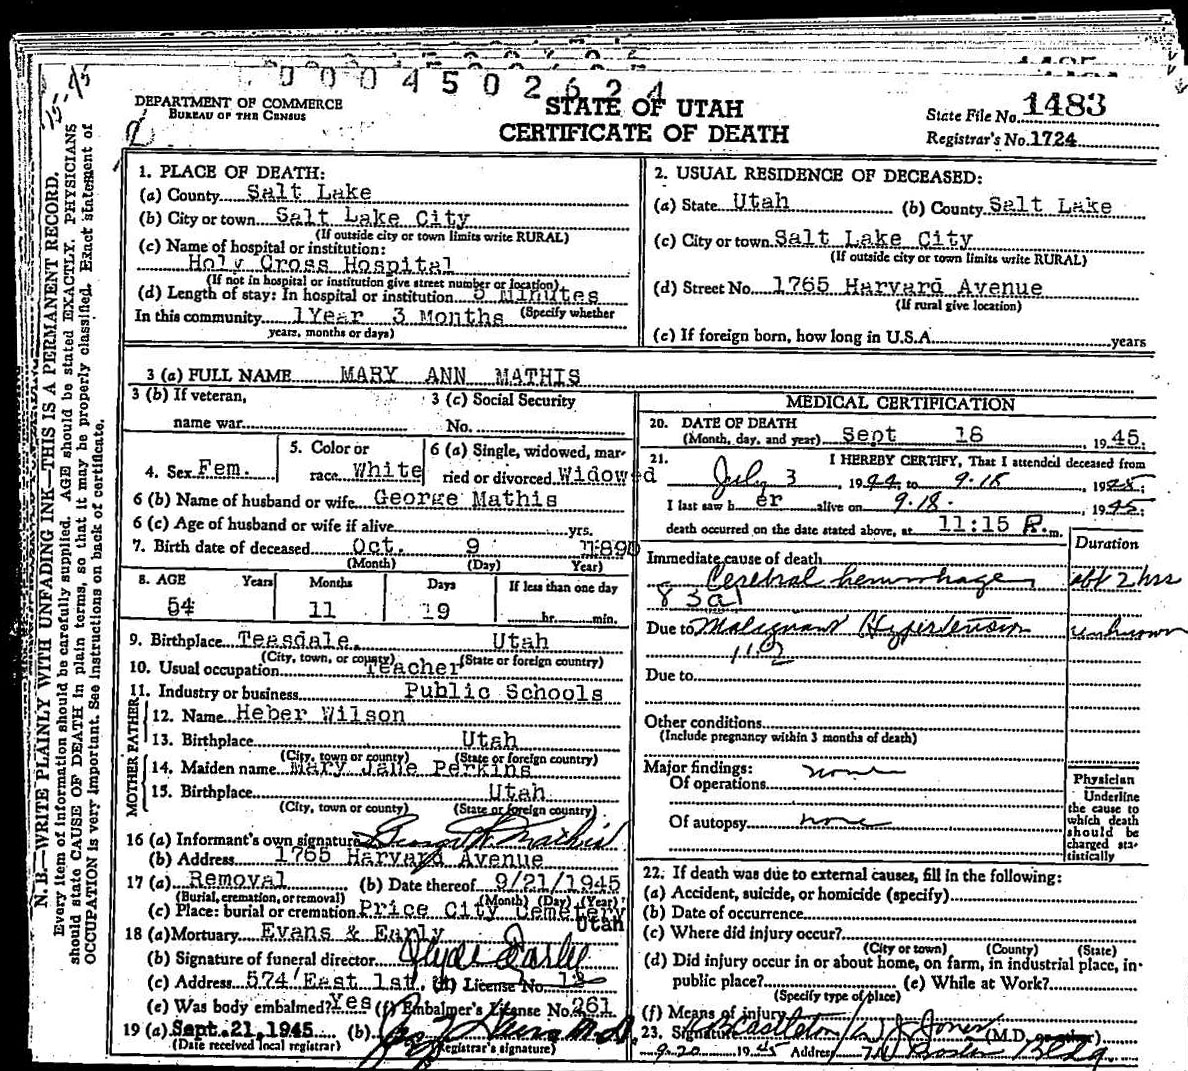 0 0 0 4 5 0 2 6 2 4
DEPARTMENT OF COMMERCE
BUREAU OF THE CENSUS
STATE OF UTAH
CERTIFICATE OF DEATH
State File No. 1483
Registrar's No. 1724
N. B.—WRITE PLAINLY WITH UNFADING INK—THIS IS A PERMANENT RECORD.
Every item of information should be carefully supplied. AGE should be stated EXACTLY. PHYSICIANS
should state CAUSE OF DEATH in plain terms, so that it may be properly classified. Exact statement of
OCCUPATION is very important. See instructions on back of certificate.
1. PLACE OF DEATH:
(a) County Salt Lake
(b) City or town Salt Lake City
(If outside city or town limits write RURAL)
(c) Name of hospital or institution:
Holy Cross Hospital
(If not in hospital or institution give street number or location)
(d) Length of stay: In hospital or institution 5 Minutes
In this community 1 Year 3 Months (Specify whether
years, months or days)
2. USUAL RESIDENCE OF DECEASED:
(a) State Utah (b) County Salt Lake
(c) City or town Salt Lake City
(If outside city or town limits write RURAL)
(d) Street No. 1765 Harvard Avenue
(If rural give location)
(e) If foreign born, how long in U.S.A. years
3 (a) FULL NAME MARY ANN MATHIS
3 (b) If veteran,
name war
3 (c) Social Security
No.
4. Sex Fem.
5. Color or
race White
6 (a) Single, widowed, mar-
ried or divorced Widowed
6 (b) Name of husband or wife George Mathis
6 (c) Age of husband or wife if alive yrs.
7. Birth date of deceased Oct. 9 1890
(Month) (Day) Year)
8. AGE Years Months Days If less than one day
54 11 19 hr. min.
9. Birthplace Teasdale, Utah
(City, town, or county) (State or foreign country)
10. Usual occupation Teacher
11. Industry or business Public Schools
FATHER
12. Name Heber Wilson
13. Birthplace Utah
(City, town or county) (State or foreign country)
MOTHER
14. Maiden name Mary Jane Perkins
15. Birthplace Utah
(City, town or county) (State or foreign country)
16 (a) Informant's own signature George W. Mathis
(b) Address 1765 Harvard Avenue
17 (a) Removal (b) Date thereof 9/21/1945
(Burial, cremation, or removal) (Month) (Day) (Year)
(c) Place: burial or cremation Price City Cemetery
Utah
18 (a) Mortuary Evans & Early
(b) Signature of funeral director Clyde Early
(c) Address 574 East 1st. (d) License No. 12
(e) Was body embalmed? Yes (f) Embalmer's License No. 261
19 (a) Sept. 21, 1945 (b) M.D.
(Date received local registrar) (Registrar's signature)
MEDICAL CERTIFICATION
20. DATE OF DEATH
(Month, day, and year) Sept 18, 1945.
21. I HEREBY CERTIFY, That I attended deceased from
July 3, 1944 to 9-18, 1945;
I last saw her alive on 9-18-, 1945;
death occurred on the date stated above, at 11:15 P.m.
Duration
Immediate cause of death
Cerebral hemorrhage abt 2 hrs
83a1
Due to Malignant Hypertension unknown
1102
Due to
Other conditions
(Include pregnancy within 3 months of death)
Major findings: none
Of operations
Of autopsy none
Physician
Underline
the cause to
which death
should be
charged sta-
tistically
22. If death was due to external causes, fill in the following:
(a) Accident, suicide, or homicide (specify)
(b) Date of occurrence
(c) Where did injury occur?
(City or town) (County) (State)
(d) Did injury occur in or about home, on farm, in industrial place, in
public place? (e) While at Work?
(Specify type of place)
(f) Means of injury
23. Signature Castleton / W J Jones (M.D. or other)
9-20 1945 Address Boston Bldg